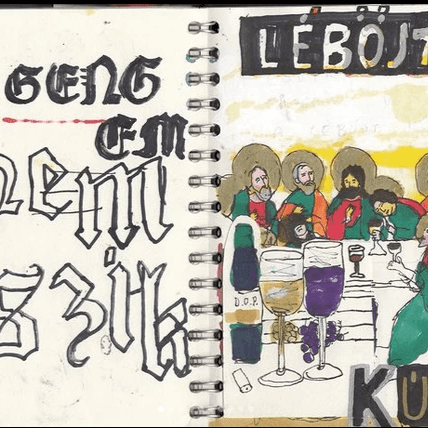 GENG
EM
nem
szik
LÉBÖJT
D.O.P.
KÚ